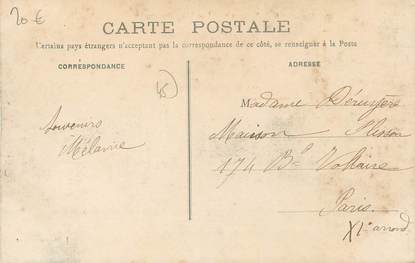 20-€
CARTE POSTALE
Certains pays étrangers n'acceptant pas la correspondance de ce côté, se renseigner à la Poste
CORRESPONDANCE
ADRESSE
Souvenirs
Mélanie
Madame
Maison
174 Bd Voltaire
Paris
XIe arrond